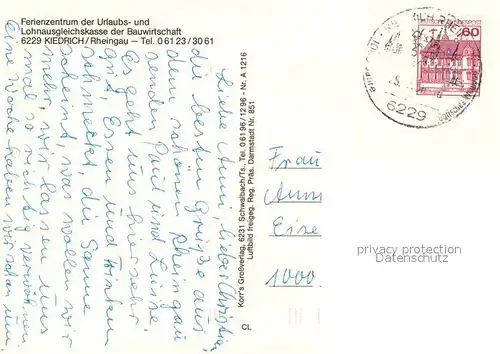 Ferienzentrum der Urlaubs- und
Lohnausgleichskasse der Bauwirtschaft
6229 KIEDRICH/Rheingau – Tel. 0 61 23 / 30 61
Liebe Anni, lieber Christian,
die besten Grüße aus
dem schönen Rheingau
senden Paul und Luise.
Es geht uns hierselbst
gut, Essen und Trinken
schmeckt, die Sonne
scheint, was wollen wir
mehr, wir lassen uns
mal so richtig verwöhnen
eine Woche haben wir schon um.
Korr's Großverlag, 6231 Schwalbach/Ts., Tel. 0 61 96 / 12 96 - Nr. A 1216
Luftbild freigeg. Reg. Präs. Darmstadt Nr. 851
CL
60
6229
Frau
1000
danpress.com
Copyright protected